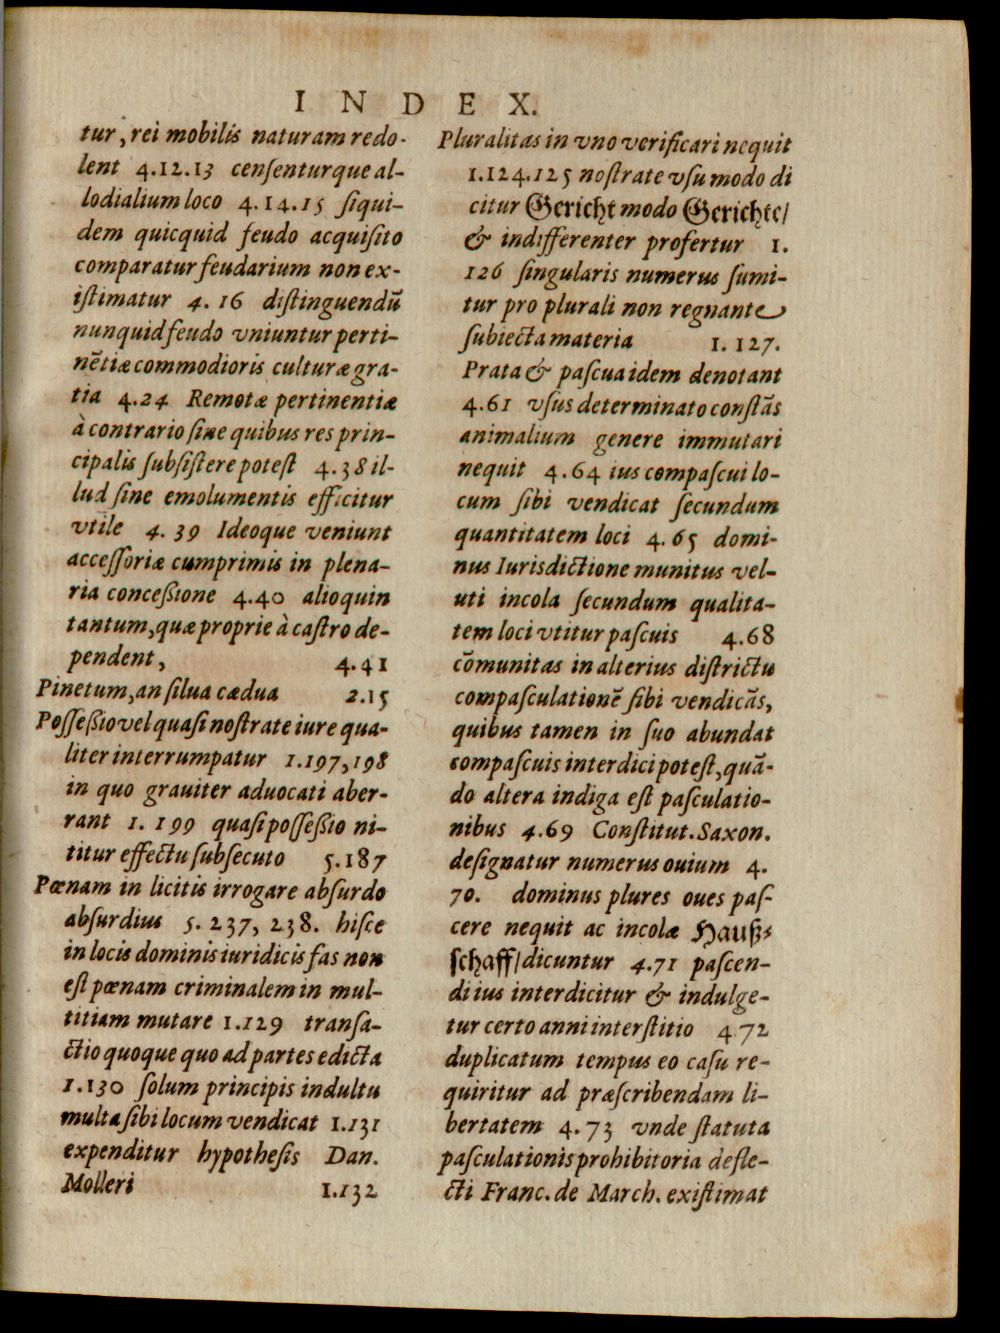 INDEX.
tur, rei mobilis naturam redo-
lent 4.12.13 censenturque al-
lodialium loco 4.14.15 siqui-
dem quicquid feudo acquisito
comparatur feudarium non ex-
istimatur 4. 16 distinguendū
nunquid feudo vniuntur perti-
nētiæ commodioris culturæ gra-
tia 4.24 Remotæ pertinentiæ
à contrario sine quibus res prin-
cipalis subsistere potest 4.38 il-
lud sine emolumentis efficitur
vtile 4. 39 Ideoque veniunt
accessoriæ cumprimis in plena-
ria conceßione 4.40 alioquin
tantum, quæ proprie à castro de-
pendent, 4.41
Pinetum, an silua cædua 2.15
Posseßio vel quasi nostrate iure qua-
liter interrumpatur 1.197, 198
in quo grauiter aduocati aber-
rant 1. 199 quasi posseßio ni-
titur effectu subsecuto 5.187
Pœnam in licitis irrogare absurdo
absurdius 5. 237, 238. hisce
in locis dominis iuridicis fas non
est pœnam criminalem in mul-
titiam mutare 1.129 transa-
ctio quoque quo ad partes edicta
1.130 solum principis indultu
multa sibi locum vendicat 1.131
expenditur hypothesis Dan.
Molleri 1.132
Pluralitas in vno verificari nequit
1.124.125 nostrate vsu modo di
citur Gericht modo Gerichte/
& indifferenter profertur 1.
126 singularis numerus sumi-
tur pro plurali non regnante
subiecta materia 1. 127.
Prata & pascua idem denotant
4.61 vsus determinato constās
animalium genere immutari
nequit 4.64 ius compascui lo-
cum sibi vendicat secundum
quantitatem loci 4.65 domi-
nus Iurisdictione munitus vel-
uti incola secundum qualita-
tem loci vtitur pascuis 4.68
cōmunitas in alterius districtu
compasculationē sibi vendicās,
quibus tamen in suo abundat
compascuis interdici potest, quā-
do altera indiga est pasculatio-
nibus 4.69 Constitut. Saxon.
designatur numerus ouium 4.
70. dominus plures oues pas-
cere nequit ac incolæ Hauß-
schaff/ dicuntur 4.71 pascen-
di ius interdicitur & indulge-
tur certo anni interstitio 4.72
duplicatum tempus eo casu re-
quiritur ad præscribendam li-
bertatem 4.73 vnde statuta
pasculationis prohibitoria defle-
cti Franc. de March. existimat